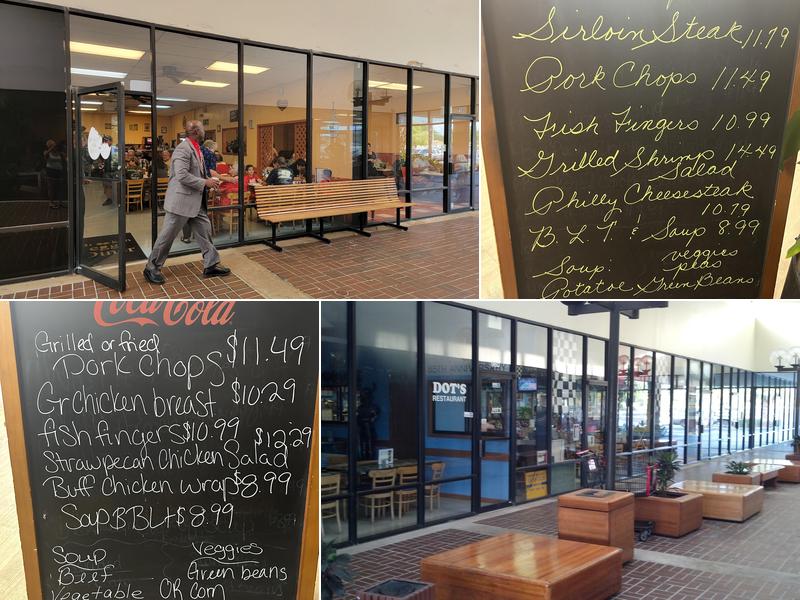 Sirloin Steak 11.79
Pork Chops 11.49
Fish Fingers 10.99
Grilled Shrimp 14.49
Salad
Philly Cheesesteak
10.79
B.L.T. & Soup 8.99
Soup: veggies
peas
Potatoe Green Beans
Coca-Cola
Grilled or fried
Pork Chops $11.49
Gr Chicken breast $10.29
fish fingers $10.99
$12.29
Straw pecan Chicken Salad
Buff Chicken wrap $8.99
Soup BBLT $8.99
Soup Veggies
Beef Green beans
Vegetable OR Corn
55TH ANNIVERSARY
DOT'S
RESTAURANT